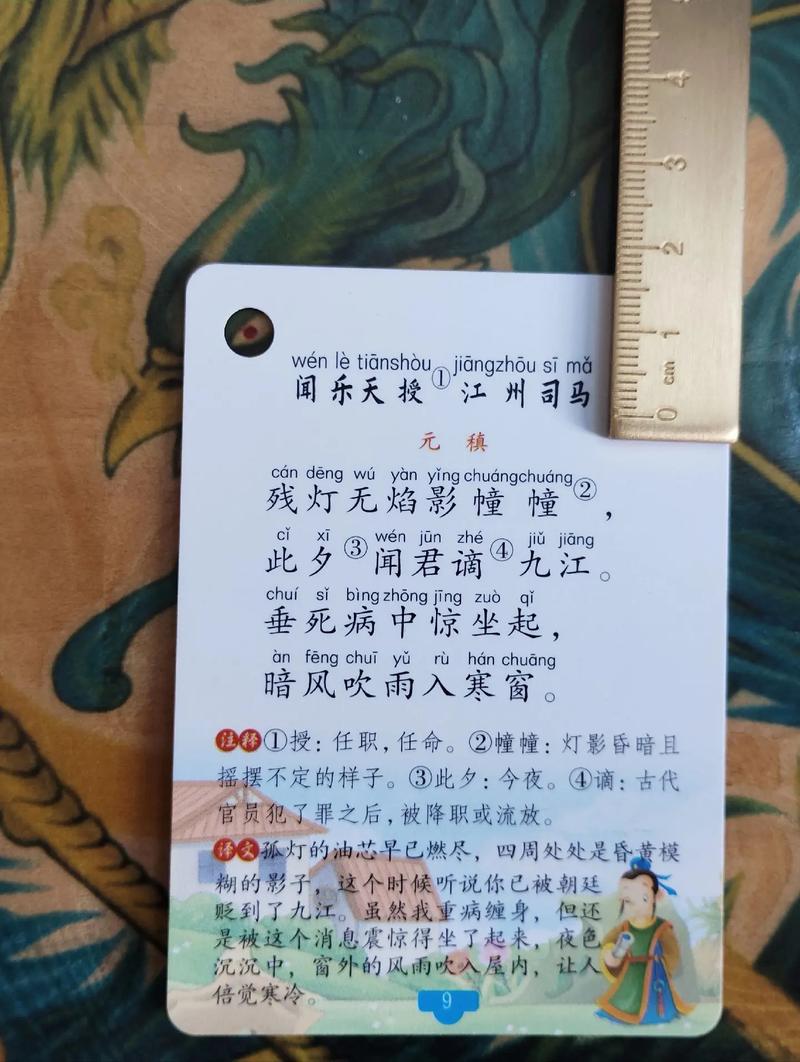 5
4
3
2
1
0 cm
wén lè tiānshòu jiāngzhōu sī mǎ
闻乐天授①江州司马
元稹
cán dēng wú yàn yǐng chuángchuáng
残灯无焰影幢幢②，
cǐ xī wén jūn zhé jiǔ jiāng
此夕③闻君谪④九江。
chuí sǐ bìng zhōng jīng zuò qǐ
垂死病中惊坐起，
àn fēng chuī yǔ rù hán chuāng
暗风吹雨入寒窗。
注释①授：任职，任命。②幢幢：灯影昏暗且
摇摆不定的样子。③此夕：今夜。④谪：古代
官员犯了罪之后，被降职或流放。
译文孤灯的油芯早已燃尽，四周处处是昏黄模
糊的影子，这个时候听说你已被朝廷
贬到了九江。虽然我重病缠身，但还
是被这个消息震惊得坐了起来，夜色
沉沉中，窗外的风雨吹入屋内，让人
倍觉寒冷。
9